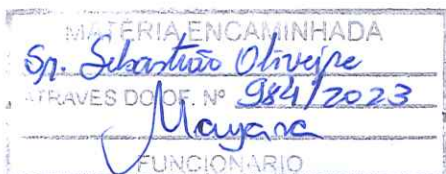 MATÉRIA ENCAMINHADA
Sr. Sebastião Oliveira
ATRAVÉS DO OF. Nº 984/2023
Mayara
FUNCIONÁRIO